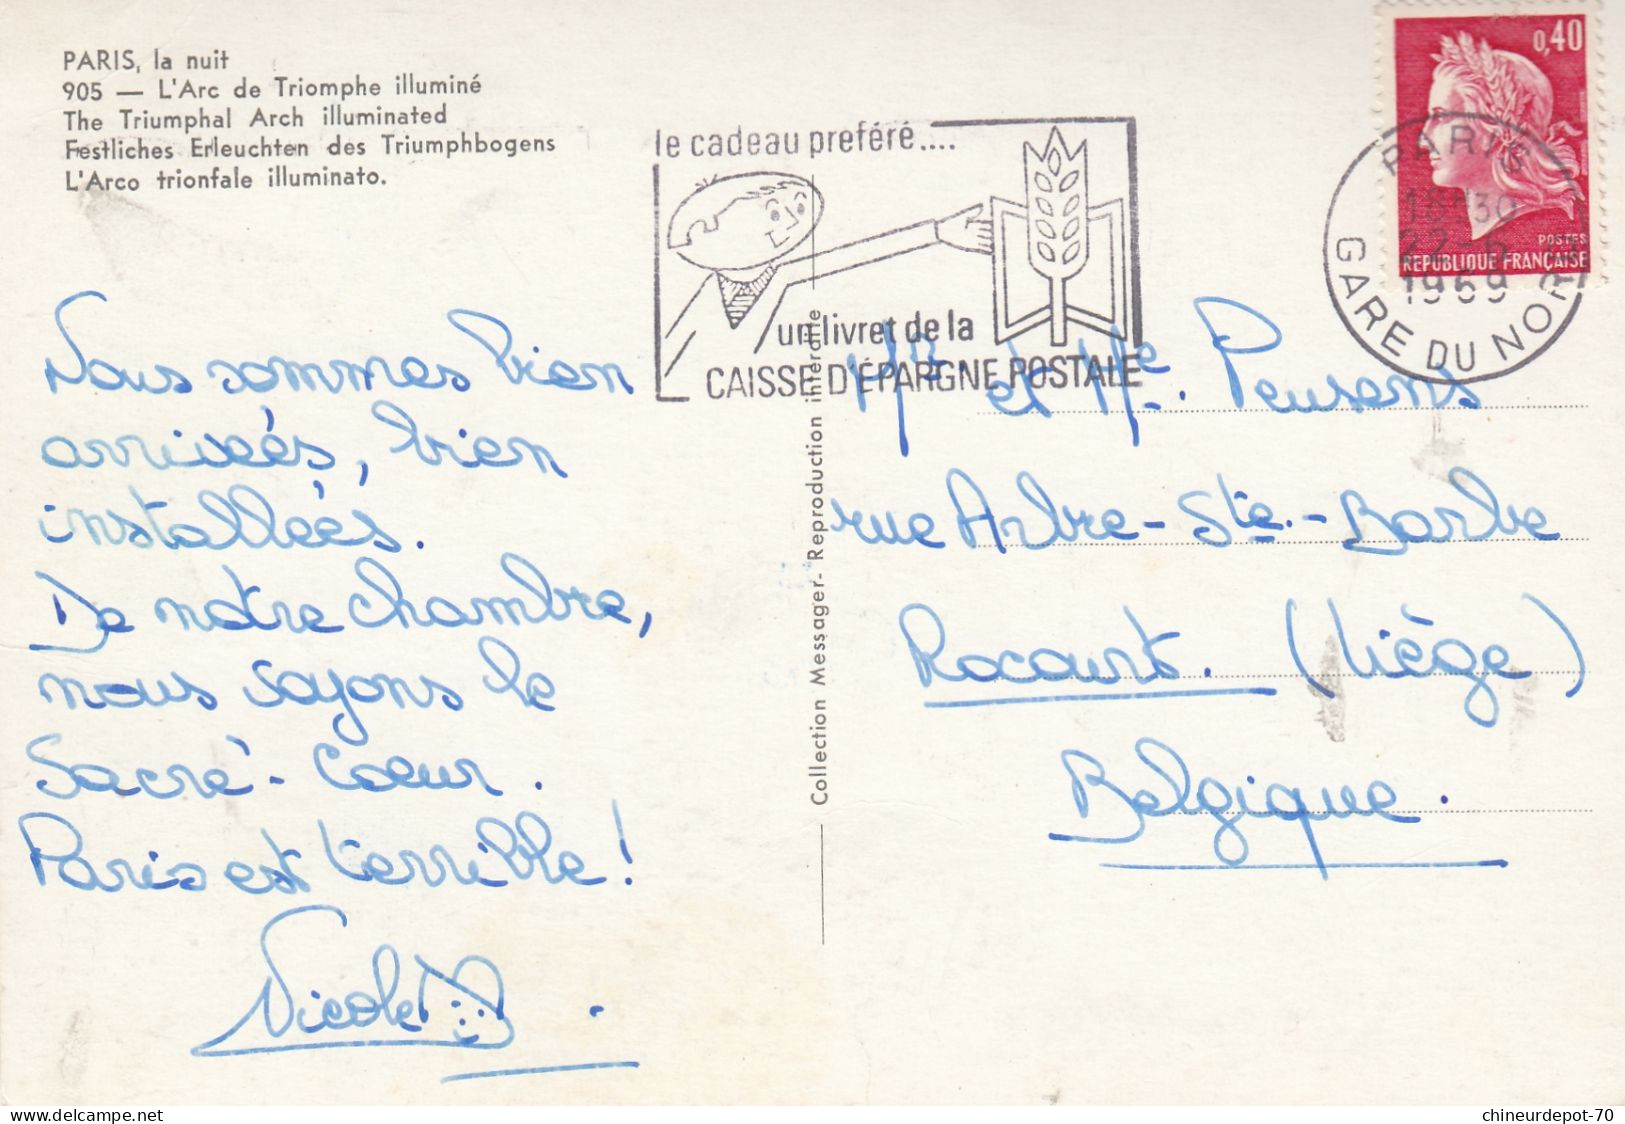 PARIS, la nuit
905 — L'Arc de Triomphe illuminé
The Triumphal Arch illuminated
Festliches Erleuchten des Triumphbogens
L'Arco trionfale illuminato.
le cadeau preféré....
un livret de la
CAISSE D'ÉPARGNE POSTALE
0,40
POSTES
REPUBLIQUE FRANÇAISE
PARIS
18H30
22-6
1969
GARE DU NORD
Nous sommes bien
arrivées, bien
installées.
De notre chambre,
nous voyons le
Sacré-Coeur.
Paris est terrible!
Nicole
Collection Messager- Reproduction interdite
Mr et Me. Peusens
rue Arbre-Ste.-Barbe
Rocourt. (Liège)
Belgique.
www.delcampe.net
chineurdepot-70